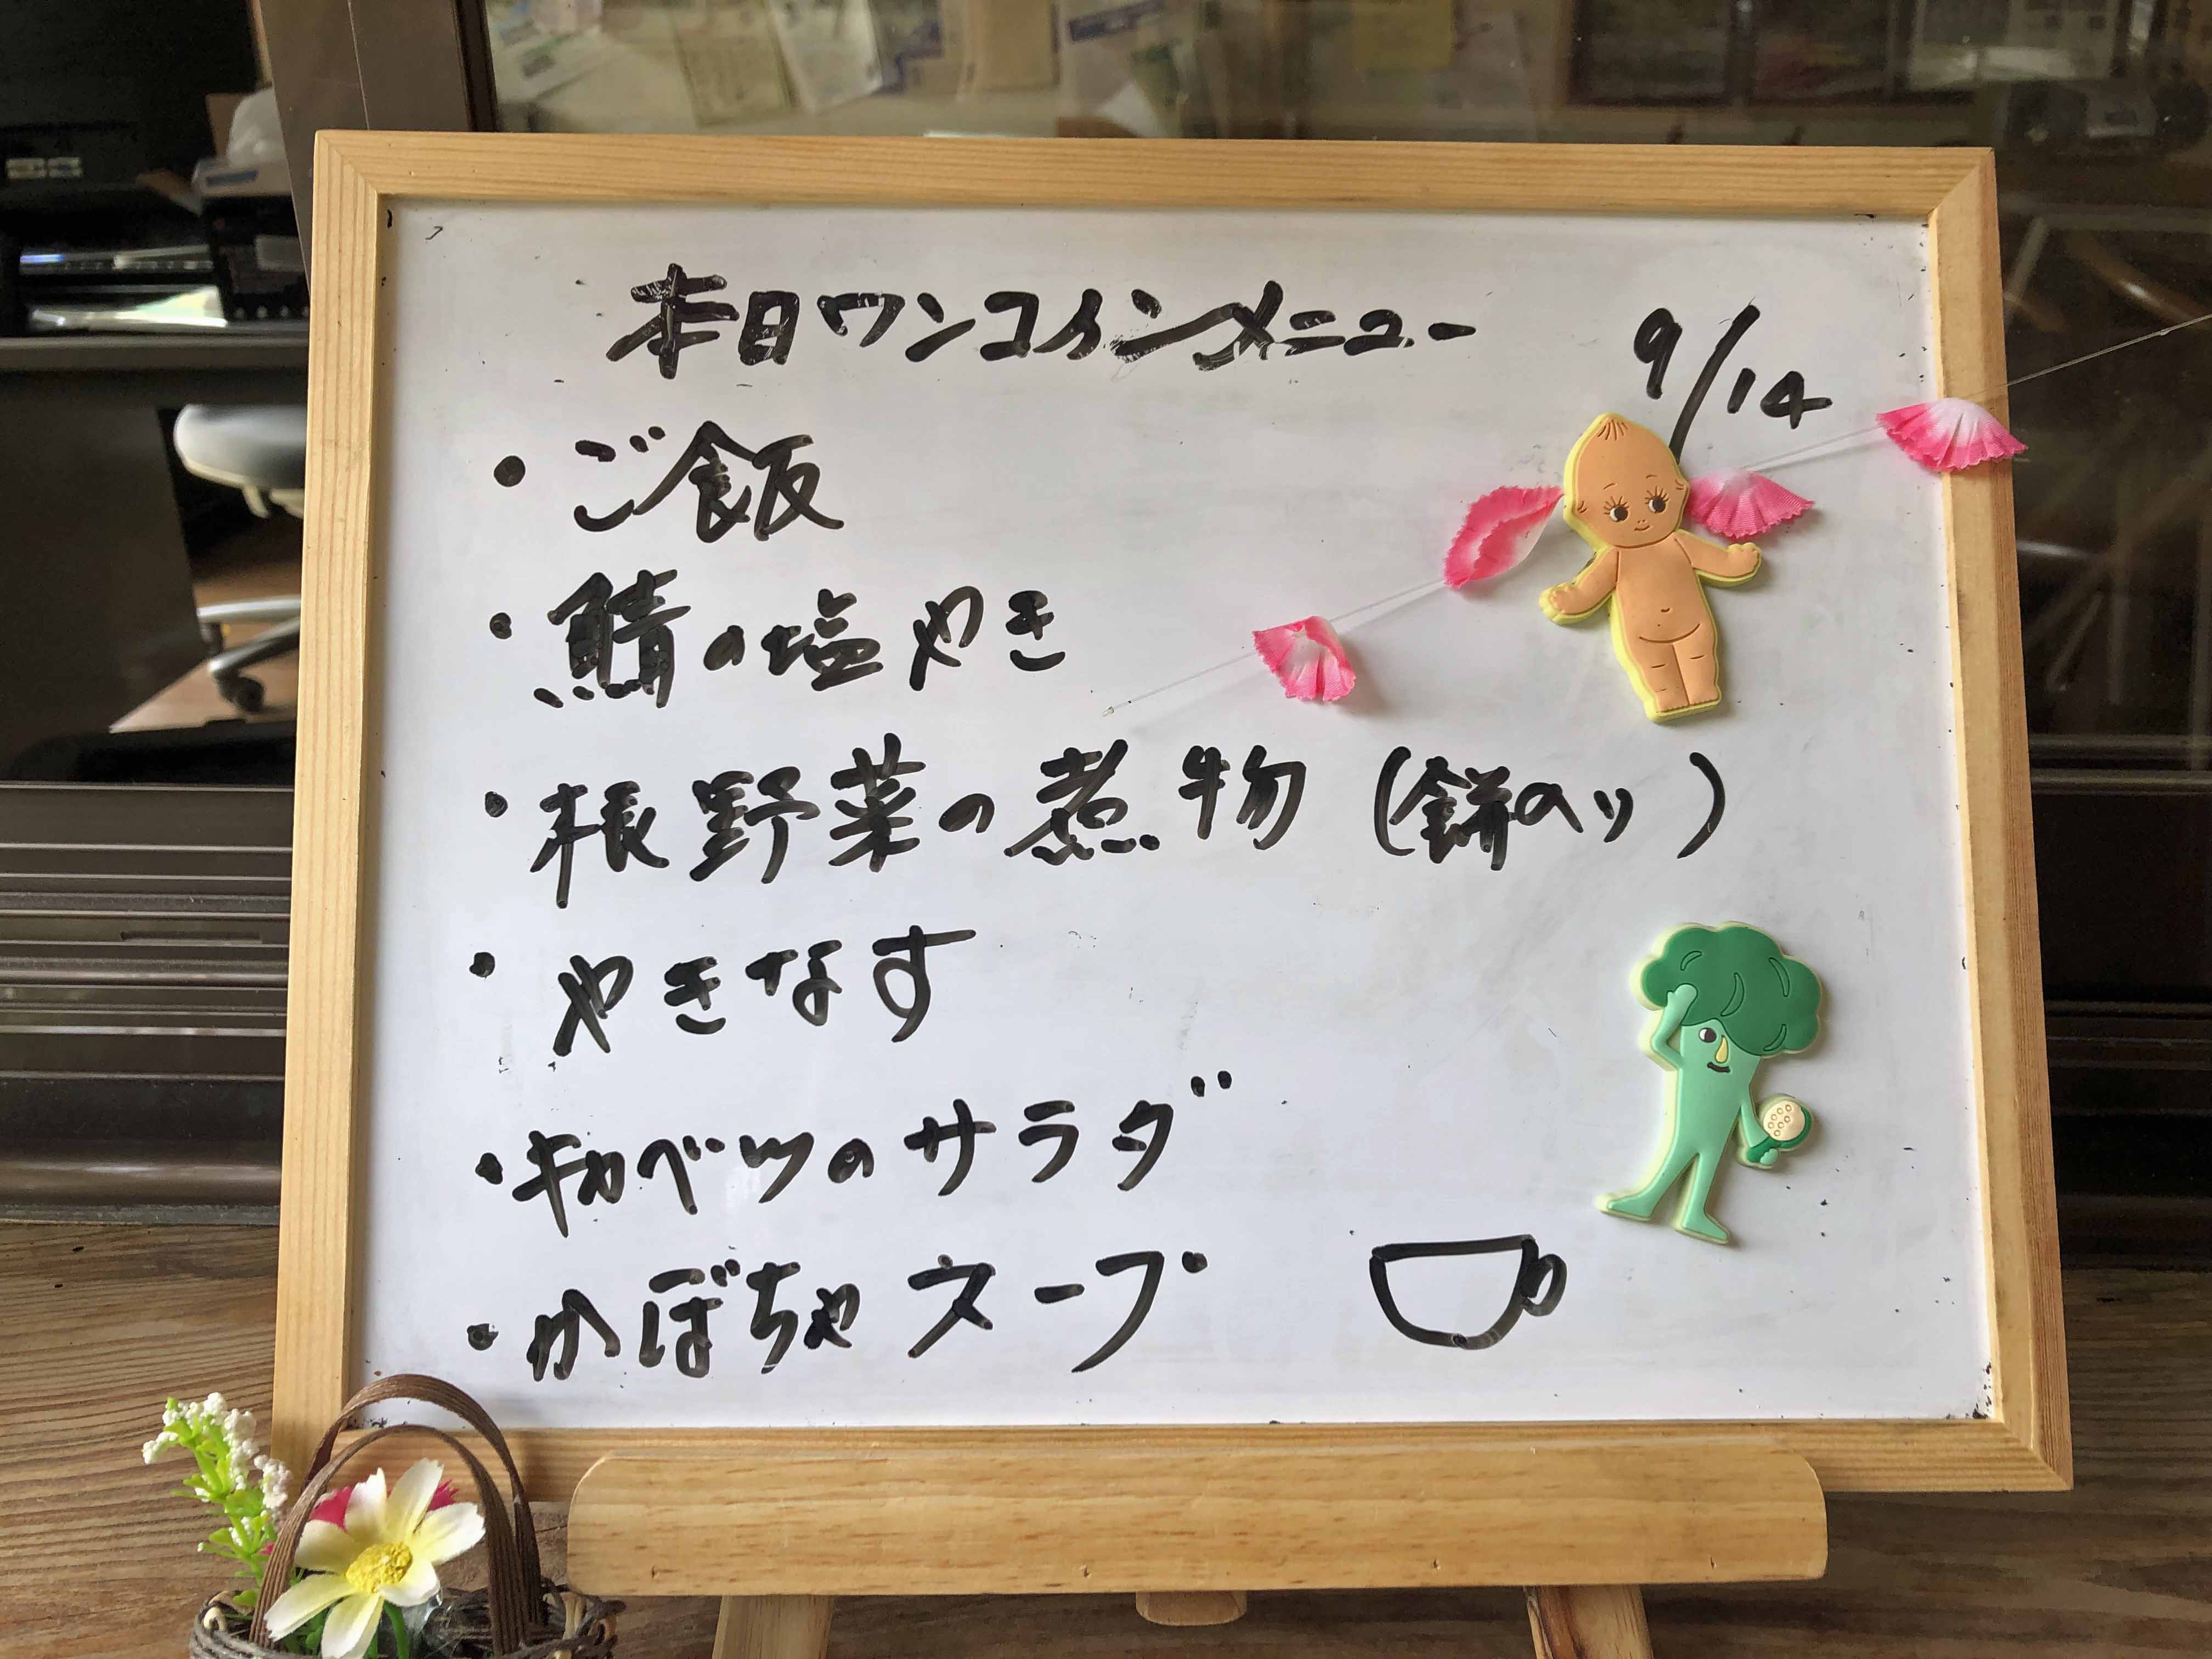 本日ワンコインメニュー 9/14
・ご飯
・鯖の塩やき
・根野菜の煮物(餅入り)
・やきなす
・キャベツのサラダ
・かぼちゃスープ